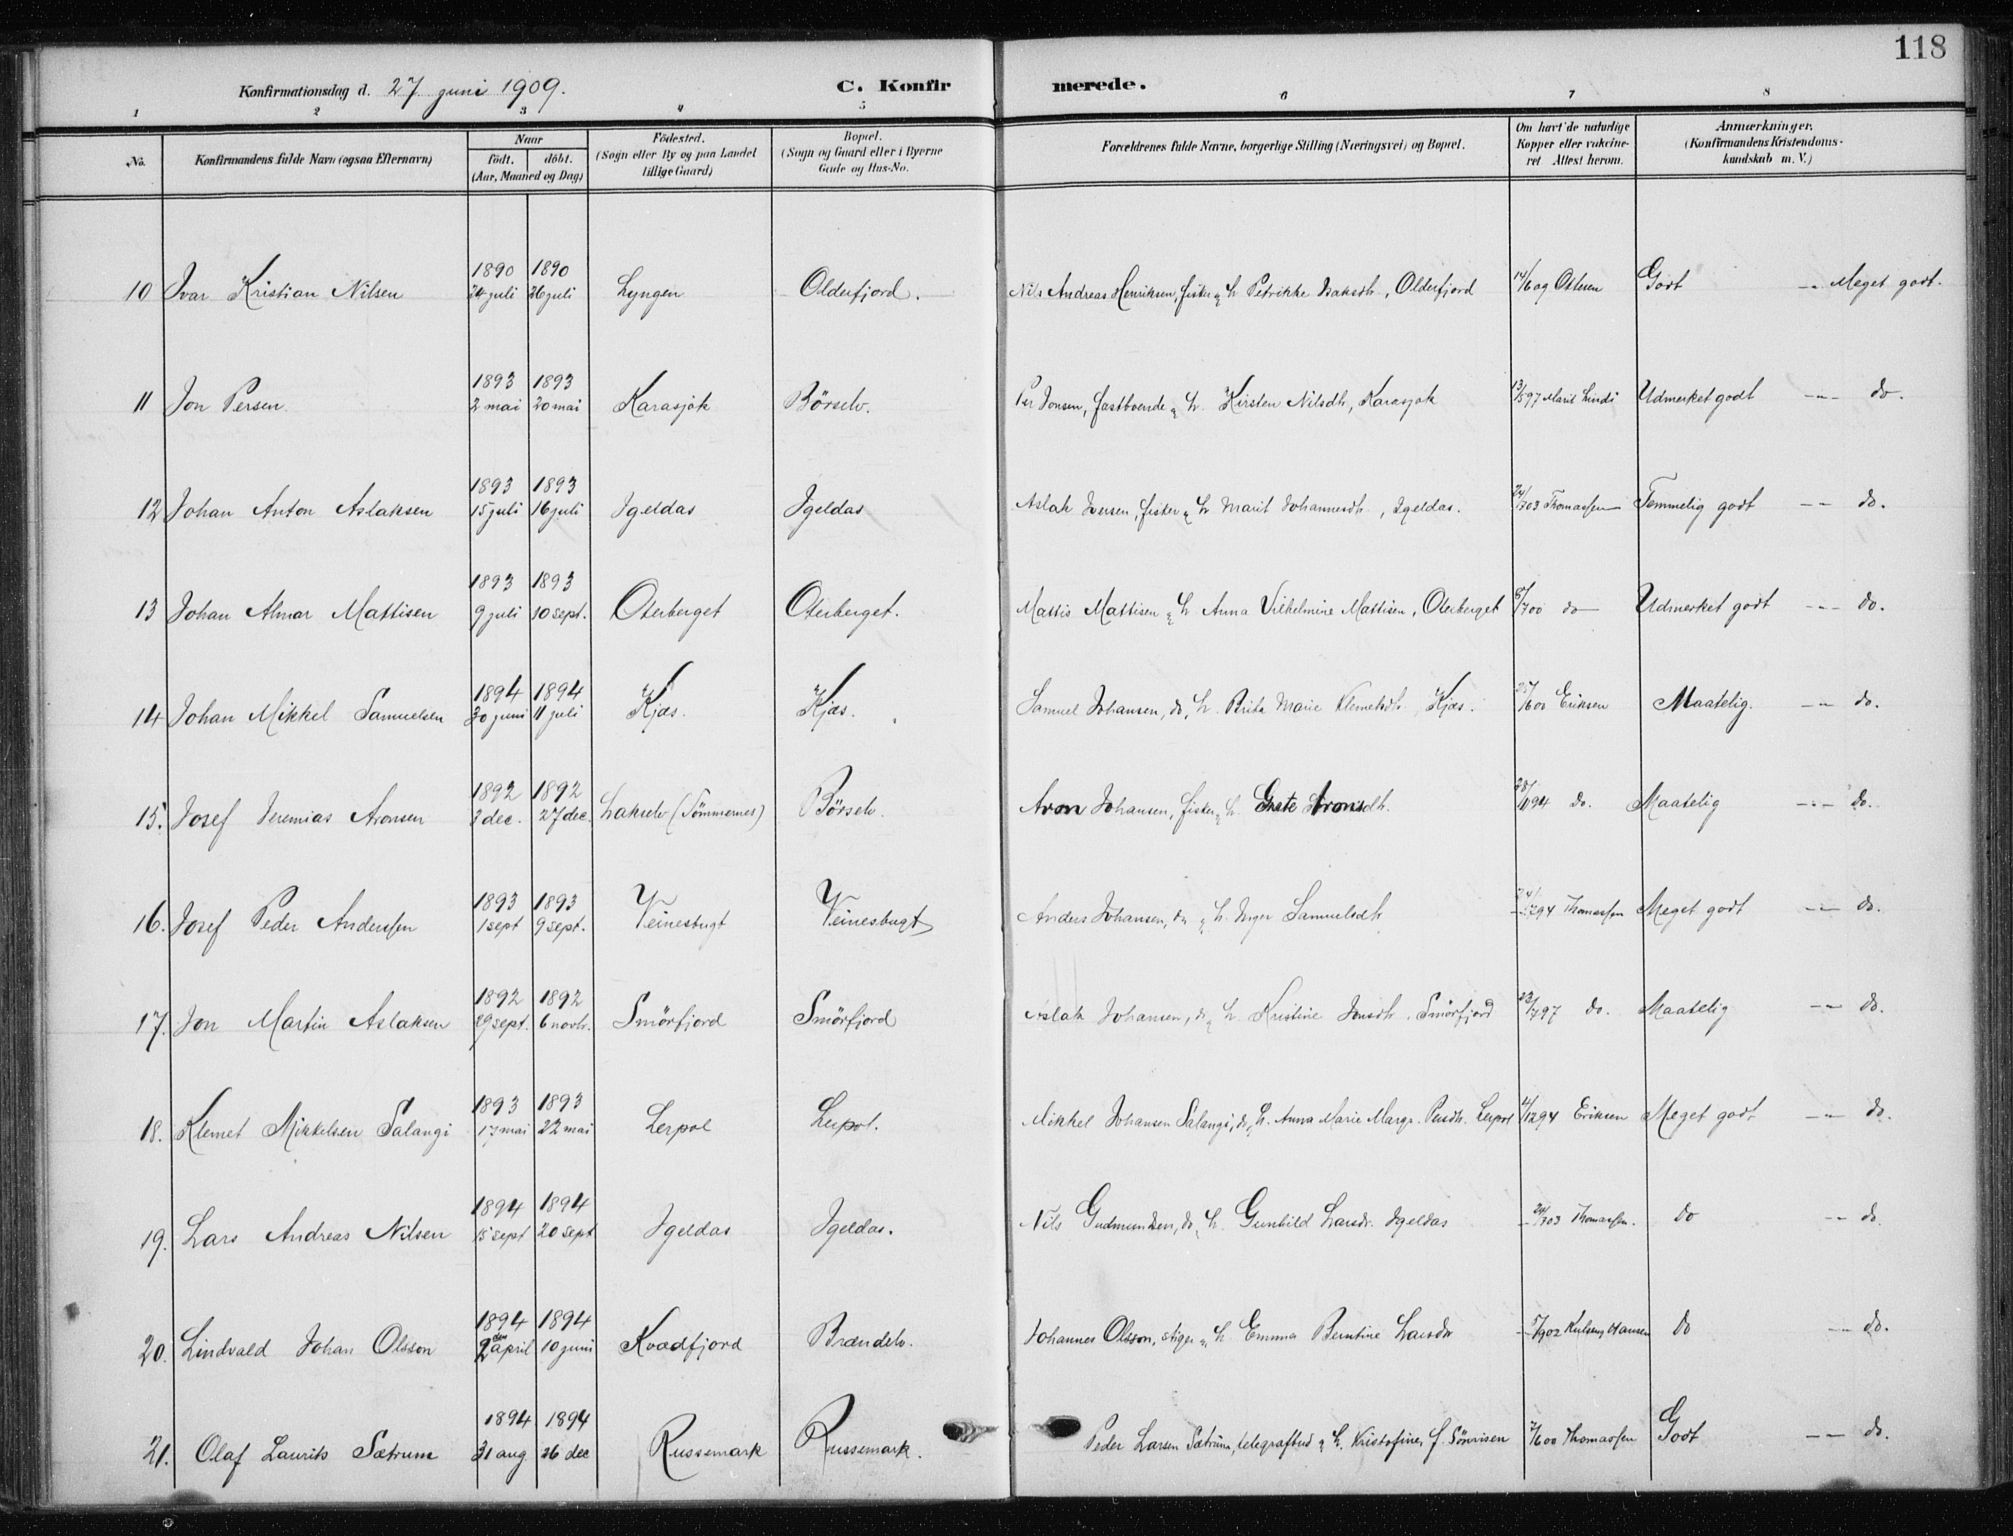 118
Konfirmationsdag d. 27 juni 1909. C. Konfirmerede.
1 2 3 4 5 6 7 8
No. Konfirmandens fulde Navn (ogsaa Efternavn) Naar født. døbt. (Aar, Maaned og Dag) Fødested. (Sogn eller By og paa Landet tillige Gaard) Bopæl. (Sogn og Gaard eller i Byerne Gade og Hus-No. Forældrenes fulde Navne, borgerlige Stilling (Næringsvei) og Bopæl. Om havt de naturlige Kopper eller vakcineret Attest herom. Anmærkninger. (Konfirmandens Kristendomskundskab m. V.)
1890 1890
10 Ivar Kristian Nilsen 24 juli 26 juli Lyngen Olderfjord. Nils Andreas Henriksen, fisker & h. Petrikke Isaksdtr, Olderfjord 14/6 09 Ottesen Godt -"- Meget godt.
1893 1893
11 Jon Persen. 2 mai 20 mai Karasjok Börselv. Per Jonsen, fastboende & h. Kirsten Nilsdtr, Karasjok 13/5 97 Marit Lindi Udmerket godt -"- do.
1893 1893
12 Johan Anton Aslaksen 15 juli 16 juli Igeldas Igeldas Aslak Iversen, fisker & h. Marit Johannesdtr, Igeldas. 24/7 03 Thomassen Temmelig godt -"- do.
1893 1893
13 Johan Almar Mattisen 9 juli 10 sept. Oterberget Oterberget. Mattis Mattisen & h. Anna Vilhelmine Mattisen, Oterberget 8/7 00 do Udmerket godt -"- do.
1894 1894
14 Johan Mikkel Samuelsen 30 juni 11 juli Kjæs. Kjæs. Samuel Johansen, do, h. Brita Marie Klemetsdtr, Kjæs. 25/6 00 Eriksen Maatelig. -"- do.
1892 1892
15. Josef Jeremias Aronsen 3 dec. 27 dec. Lakselv (Sömmernes) Börselv. Aron Johansen, fisker & h. Grete Aronsdtr. 94 do. Maatelig -"- do.
1893 1893
16. Josef Peder Anderssen 1 sept 9 sept. Veinesbugt Veinesbugt Anders Johansen, do & h. Inger Samuelsdtr 94 Thomassen Meget godt -"- do.
1892 1892
17. Jon Martin Aslaksen 29 sept. 6 novbr. Smörfjord Smörfjord Aslak Johansen, do & h. Kristine Jonsdtr. Smörfjord 23/7 97 do. Maatelig -"- do.
1893 1893
18. Klemet Mikkelsen Salangi 17 mai 22 mai Lerpol Lerpol. Mikkel Johansen Salangi, do, h. Anna Marie Margr. Persdtr. Lerpol 94 Eriksen Meget godt -"- do.
1894 1894
19. Lars Andreas Nilsen 15 sept 20 sept Igeldas Igeldas. Nils Gudmundsen, do, h. Gunhild Larsdtr. Igeldas 24/7 03 Thomassen. do -"- do.
1894 1894
20. Lindvald Johan Olsson 2den april 10 juni Kvædfjord Brændelv. Johannes Olsson, stiger & h. Emma Berntine Larsdtr 902 Hansen do -"- do.
1894 1894
21. Olaf Laurits Sætrum 31 aug 26 dec Russemark Russemark. Peder Larsen Sætrum, telegrafbud & h. Kristofine, f. Sönvisen 7/6 00 Thomassen Godt -"- do.